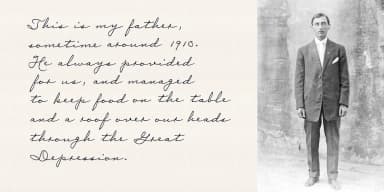 This is my father,
sometime around 1910.
He always provided
for us, and managed
to keep food on the table
and a roof over our heads
through the Great
Depression.